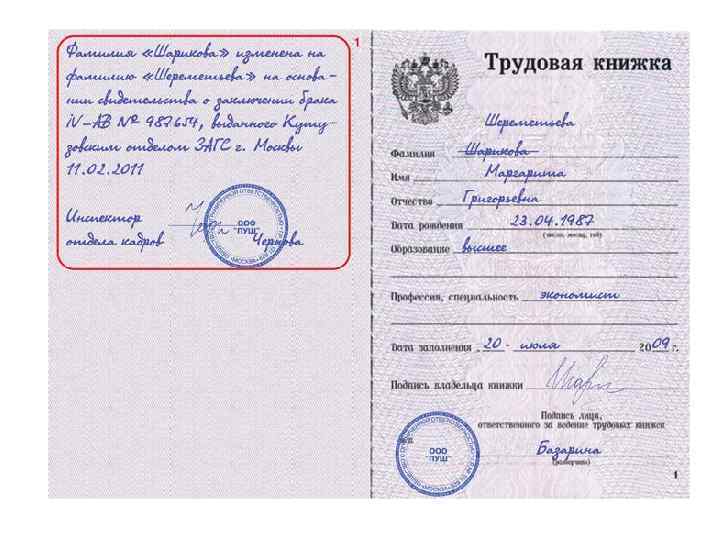 1
Фамилия «Шарикова» изменена на
фамилию «Шереметьева» на основа-
нии свидетельства о заключении брака
IV-АВ № 987654, выданного Куту-
зовским отделом ЗАГС г. Москвы
11.02.2011
Инспектор
отдела кадров Чернова
ООО
"ПУШ"
Трудовая книжка
Шереметьева
Фамилия Шарикова
Имя Маргарита
Отчество Григорьевна
Дата рождения 23.04.1987
(число, месяц, год)
Образование высшее
Профессия, специальность экономист
Дата заполнения 20 июля 2009 г.
Подпись владельца книжки
Подпись лица,
ответственного за ведение трудовых книжек
М.П.
ООО
"ПУШ"
Базарина
(разборчиво)
1